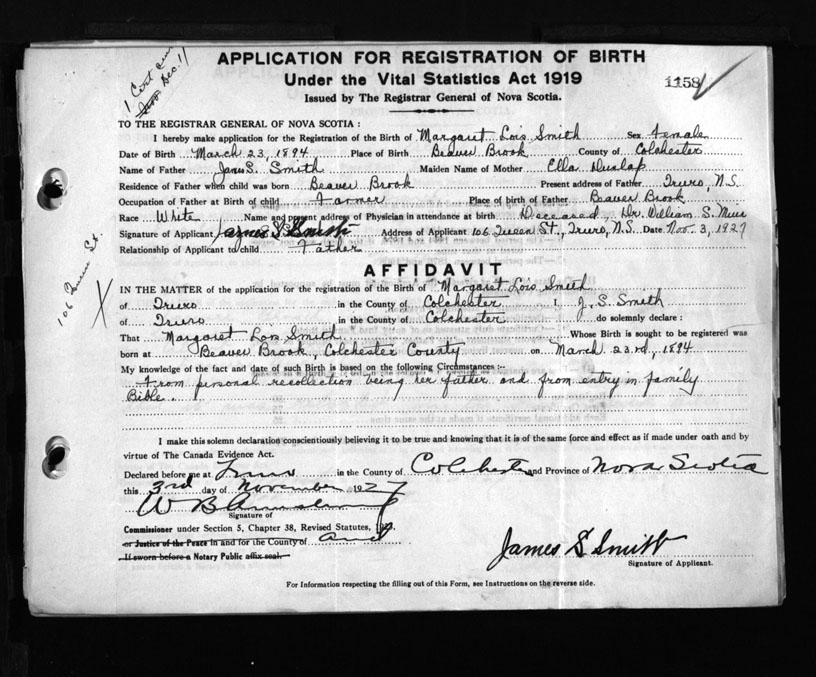 1 Cert sent
Dec. 11
APPLICATION FOR REGISTRATION OF BIRTH
Under the Vital Statistics Act 1919
Issued by The Registrar General of Nova Scotia.
1158
TO THE REGISTRAR GENERAL OF NOVA SCOTIA :
I hereby make application for the Registration of the Birth of Margaret Lois Smith Sex Female
Date of Birth March 23, 1894 Place of Birth Beaver Brook County of Colchester
Name of Father James S. Smith Maiden Name of Mother Ella Dunlap
Residence of Father when child was born Beaver Brook Present address of Father Truro, N.S.
Occupation of Father at Birth of child Farmer Place of birth of Father Beaver Brook
Race White Name and present address of Physician in attendance at birth Deceased, Dr. William S. Muir
Signature of Applicant James S Smith Address of Applicant 106 Queen St., Truro, N.S. Date Nov. 3, 1927
Relationship of Applicant to child Father
106 Queen St.
X
AFFIDAVIT
IN THE MATTER of the application for the registration of the Birth of Margaret Lois Smith
of Truro in the County of Colchester I, J. S. Smith
of Truro in the County of Colchester do solemnly declare :
That Margaret Lois Smith Whose Birth is sought to be registered was
born at Beaver Brook, Colchester County on March 23rd, 1894
My knowledge of the fact and date of such Birth is based on the following Circumstances :-
From personal recollection being her father and from entry in family
Bible.
I make this solemn declaration conscientiously believing it to be true and knowing that it is of the same force and effect as if made under oath and by
virtue of The Canada Evidence Act.
Declared before me at Truro in the County of Colchester and Province of Nova Scotia
this 3rd day of November 1927
Signature of
Commissioner under Section 5, Chapter 38, Revised Statutes,
or Justice of the Peace in and for the County of
If sworn before a Notary Public affix seal.
James S Smith
Signature of Applicant.
For Information respecting the filling out of this Form, see Instructions on the reverse side.